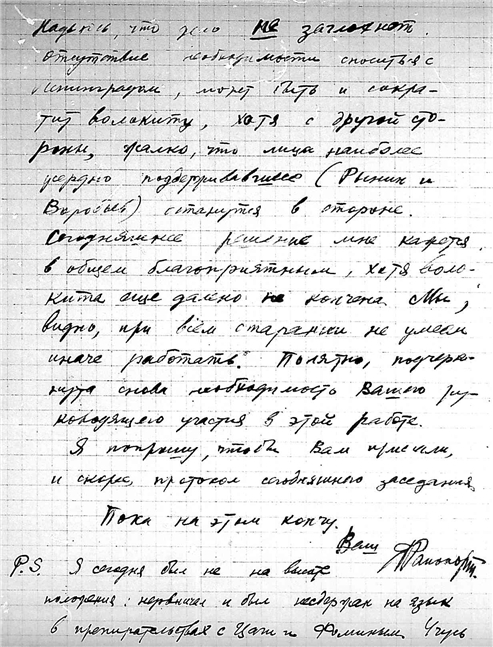 Надеюсь, что дело не заглохнет.
Отсутствие необходимости сноситься с
Ленинградом, может быть и сокра-
тит волокиту, хотя с другой сто-
роны, жалко, что лица наиболее
усердно поддерживавшие (Рынин и
Воробьев) останутся в стороне.
Сегодняшнее решение мне кажется
в общем благоприятным, хотя воло-
кита еще далеко не кончена. Мы,
видно, при всём старании не умеем
иначе работать. Понятно, подчерк-
нута снова необходимость Вашего ру-
ководящего участия в этой работе.
Я попрошу, чтобы Вам прислали,
и скоро, протокол сегодняшнего заседания
Пока на этом кончу.
Ваш Рапопорт.
P.S. Я сегодня был не на высоте
положения: нервничал и был несдержан на язык
в препирательствах с Цаги и Фоминым